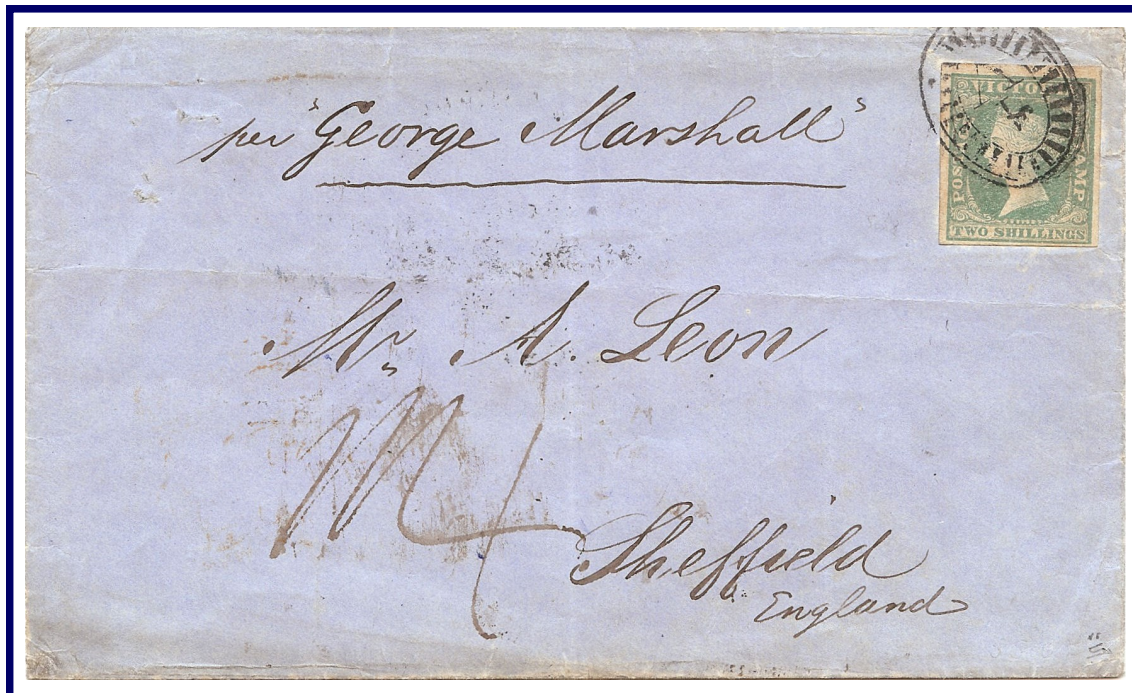 per "George Marshall"
VICTORIA
POSTAGE STAMP
TWO SHILLINGS
Mr. A. Leon
Sheffield
England